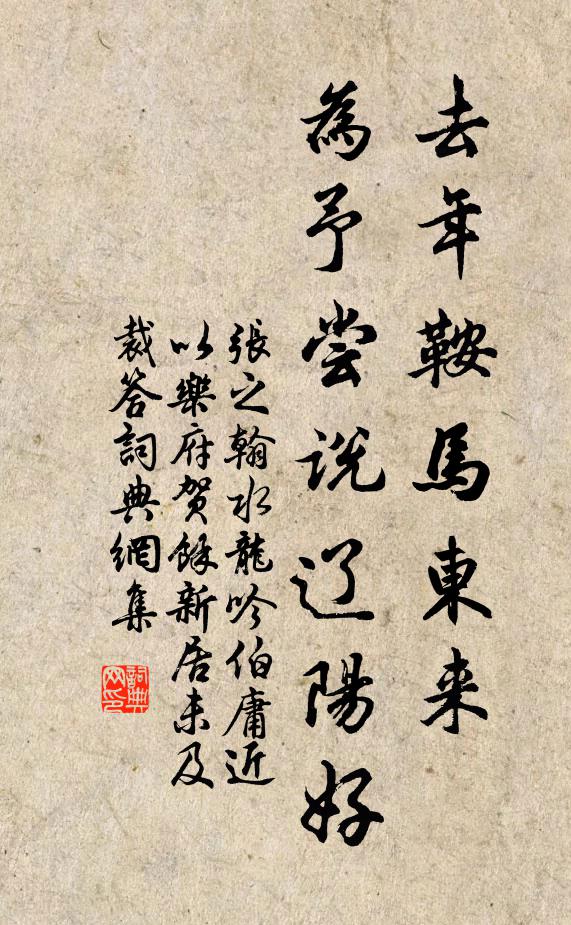 去年鞍馬東来
為予尝说辽陽好
張之翰水龍吟伯庸近
以樂府贺餘新居未及
裁答詞典網集
詞典网印